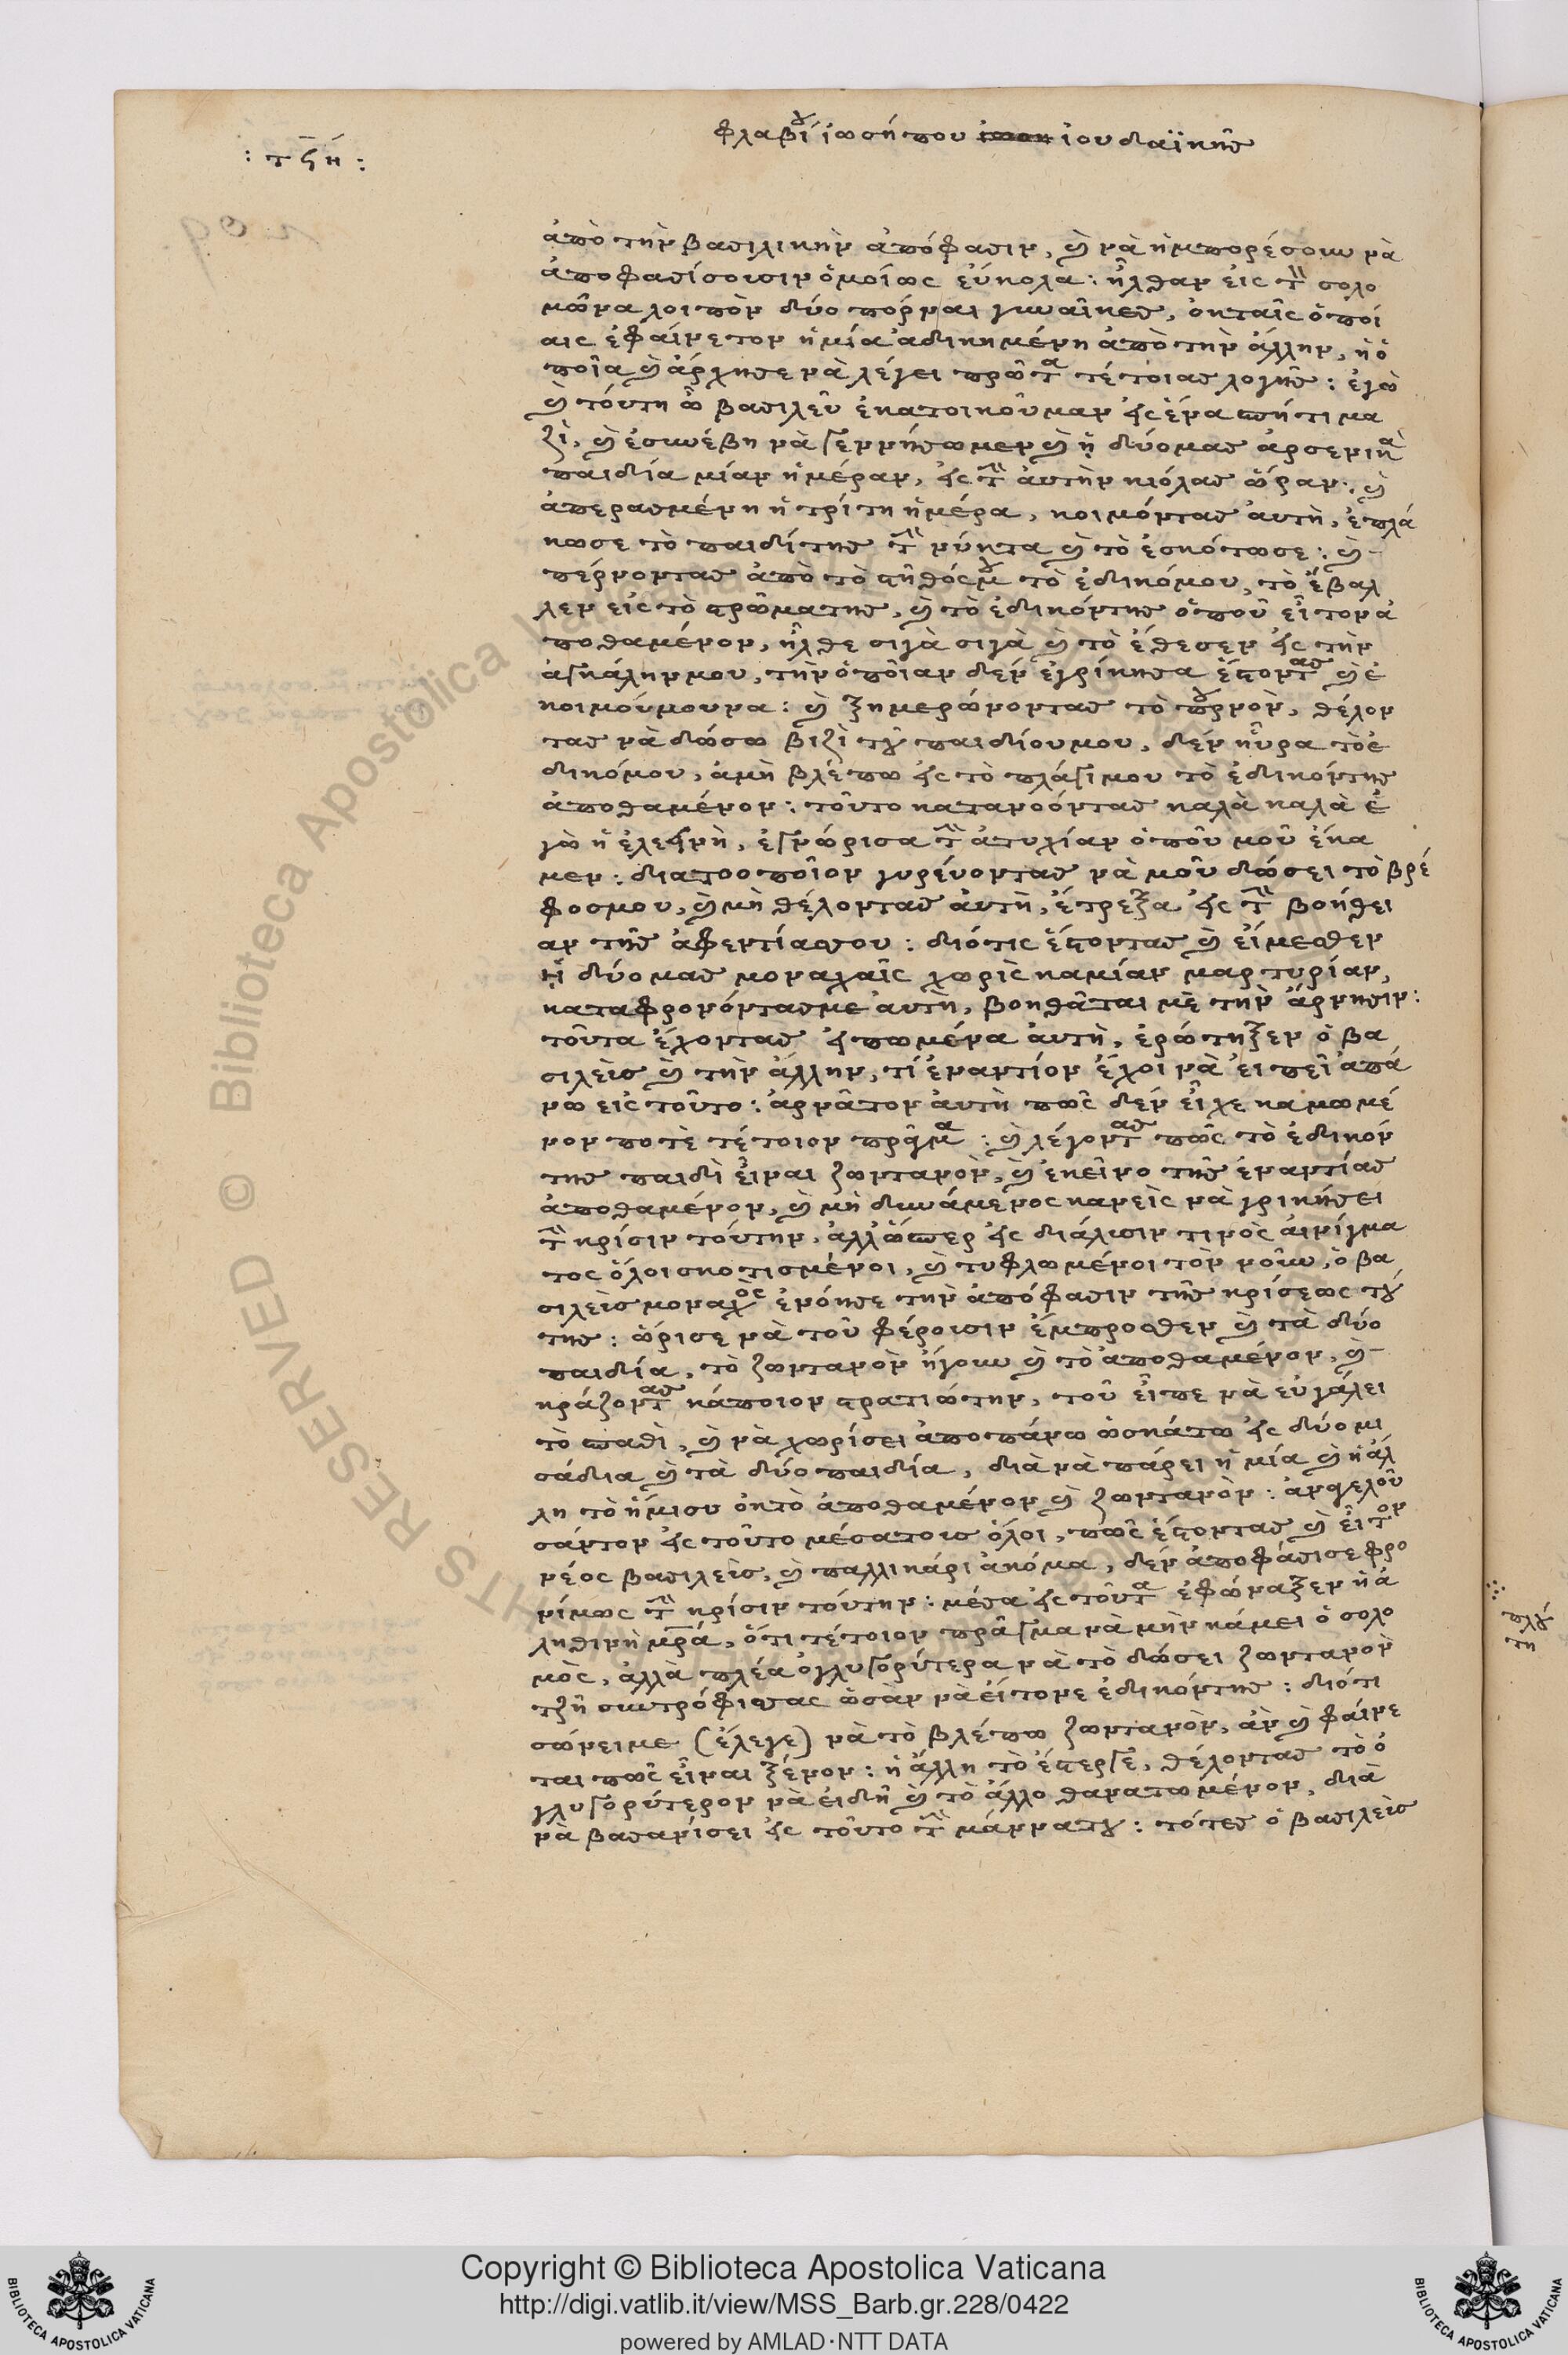 φλαβίου ἰωσήπου ἰουδαϊκῆς
: τϟή :
ἀπὸ τὴν βασιλικὴν ἀπόφασιν, καὶ νὰ ἠμπορέσουν νὰ
ἀποφασίσουσιν ὁμοίως εὔκολα : ἦλθαν εἰς τὸν σολο
μῶνα λοιπὸν δύο πόρναι γυναῖκες, ἐκ ταῖς ὁποί
αις ἐφαίνετον ἡ μία ἀδικημένη ἀπὸ τὴν ἄλλην, ἡ ὁ
ποῖα καὶ ἄρχησε νὰ λέγει πρῶτα τέτοιας λογῆς : ἐγὼ
καὶ τούτη ὦ βασιλεῦ ἐκατοικοῦμαν εἰς ἕνα σπήτι μα
ζὶ, καὶ ἐσυνέβη νὰ γεννήσωμεν καὶ ᾑ δύομας ἀρσενικὰ
παιδία μίαν ἡμέραν, εἰς τὴν αὐτὴν κιόλας ὥραν : καὶ
ἀπερασμένη ἡ τρίτη ἡμέρα, κοιμόντας αὐτὴ, ἐπλά
κωσε τὸ παιδίτης τὴν νύκτα καὶ τὸ ἐσκότωσε : καὶ
πέρνοντας ἀπὸ τὸ στῆθόςμου τὸ ἐδικόμου, τὸ ἔβαλ
λεν εἰς τὸ στρῶματης, καὶ τὸ ἐδικόντης ὁποῦ εἶτον ἀ
ποθαμένον, ἦλθε σιγὰ σιγὰ καὶ τὸ ἔθεσεν εἰς τὴν
ἀγκάληνμου, τὴν ὁποῖαν δὲν ἐγρίκησα ἔστοντας καὶ ἐ
κοιμούμουνα : καὶ ξημερώνοντας τὸ πουρνὸν, θέλον
τας νὰ δώσω βιζὶ τοῦ παιδίουμου, δὲν ηὗρα τὸ ἐ
δικόμου, ἀμὴ βλέπω εἰς τὸ πλάγιμου τὸ ἐδικόντης
ἀποθαμένον : τοῦτο κατανοόντας καλὰ καλὰ ἐ
γὼ ἡ ἐλεεινὴ, ἐγνώρισα τὴν ἀτυχίαν ὁποῦ μοῦ ἐκα
μεν : διατοοποῖον γυρεύοντας νὰ μοῦ δώσει τὸ βρέ
φοσμου, καὶ μὴ θέλοντας αὐτὴ, ἔτρεξα εἰς τὴν βοήθει
αν τῆς ἀφεντίαςσου : διότις ἔστοντας καὶ εἴμεσθεν
ᾑ δύομας μοναχαῖς χωρὶς καμίαν μαρτυρίαν,
καταφρονόντασμε αὐτὴ, βοηθᾶται μὲ τὴν ἄρνησιν :
τοῦτα ἔχοντας εἰπωμένα αὐτὴ, ἐρώτηξεν ὁ βα
σιλεὺς καὶ τὴν ἄλλην, τί ἐναντίον ἔχοι νὰ εἰπεῖ ἀπά
νω εἰς τοῦτο : ἀρνᾶτον αὐτὴ πῶς δὲν εἶχε καμωμέ
νον ποτὲ τέτοιον πρᾶγμα : καὶ λέγοντας πῶς τὸ ἐδικόν
της παιδὶ εἶναι ζωντανὸν, καὶ ἐκεῖνο τῆς ἐναντίας
ἀποθαμένον, καὶ μὴ δυνάμενος κανεὶς νὰ γρικήσει
τὴν κρίσιν τούτην, ἀλλ' ὥσπερ εἰς διάλυσιν τινὸς αἰνίγμα
τος ὅλοι σκοτισμένοι, καὶ τυφλωμένοι τὸν νοῦν, ὁ βα
σιλεὺς μοναχὸς ἐνόησε τὴν ἀπόφασιν τῆς κρίσεως τού
της : ὥρισε νὰ τοῦ φέρουσιν ἔμπροσθεν καὶ τὰ δύο
παιδία, τὸ ζωντανὸν ἤγουν καὶ τὸ ἀποθαμένον, καὶ
κράζοντας κάποιον στρατιώτην, τοῦ εἶπε νὰ εὐγάλει
τὸ σπαθὶ, καὶ νὰ χωρίσει ἀποπάνω ὡσκάτω εἰς δύο μι
σάδια καὶ τὰ δύο παιδία, διὰ νὰ πάρει ἡ μία καὶ ἡ ἄλ
λη τὸ ἥμισυ ἐκ τὸ ἀποθαμένον καὶ ζωντανὸν : ἀνγελοῦ
σάντον εἰς τοῦτο μέσατους ὅλοι, πῶς ἔστοντας καὶ εἶτον
νέος βασιλεὺς, καὶ παλλικάρι ἀκόμα, δὲν ἀποφάσισε φρο
νίμως τὴν κρίσιν τούτην : μέσα εἰς τοῦτα ἐφώναξεν ἡ ἀ
ληθινὴ μρά, ὅτι τέτοιον πρᾶγμα νὰ μὴν κάμει ὁ σολο
μὸς, ἀλλὰ πλέα ὀγλυγορύτερα νὰ τὸ δώσει ζωντανὸν
τζῆ συντρόφισσας ὡσὰν νὰ εἴτονε ἐδικόντης : διότι
σώνειμε (ἔλεγε) νὰ τὸ βλέπω ζωντανὸν, ἂν καὶ φαίνε
ται πῶς εἶναι ξένον : ἡ ἄλλη τὸ ἔστεργε, θέλοντας τὸ ὀ
γλυγορύτερον νὰ εἰδῆ καὶ τὸ ἄλλο θανατωμένον, διὰ
νὰ βασανίσει εἰς τοῦτο τὴν μάννατου : τότες ὁ βασιλεὺς
Copyright © Biblioteca Apostolica Vaticana
http://digi.vatlib.it/view/MSS_Barb.gr.228/0422
powered by AMLAD·NTT DATA
BIBLIOTECA APOSTOLICA VATICANA
BIBLIOTECA APOSTOLICA VATICANA